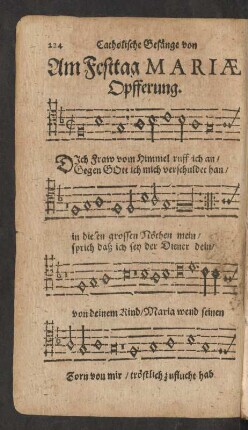 224 Catholische Gesänge von
Am Festtag MARIÆ
Opfferung.
DIch Fraw vom Himmel ruff ich an/
Gegen GOtt ich mich verschuldet han/
in diesen grossen Nöthen mein/
sprich daß ich sey der Diener dein/
von deinem Kind/Maria wend seinen
Zorn von mir/ tröstlich zuflucht hab